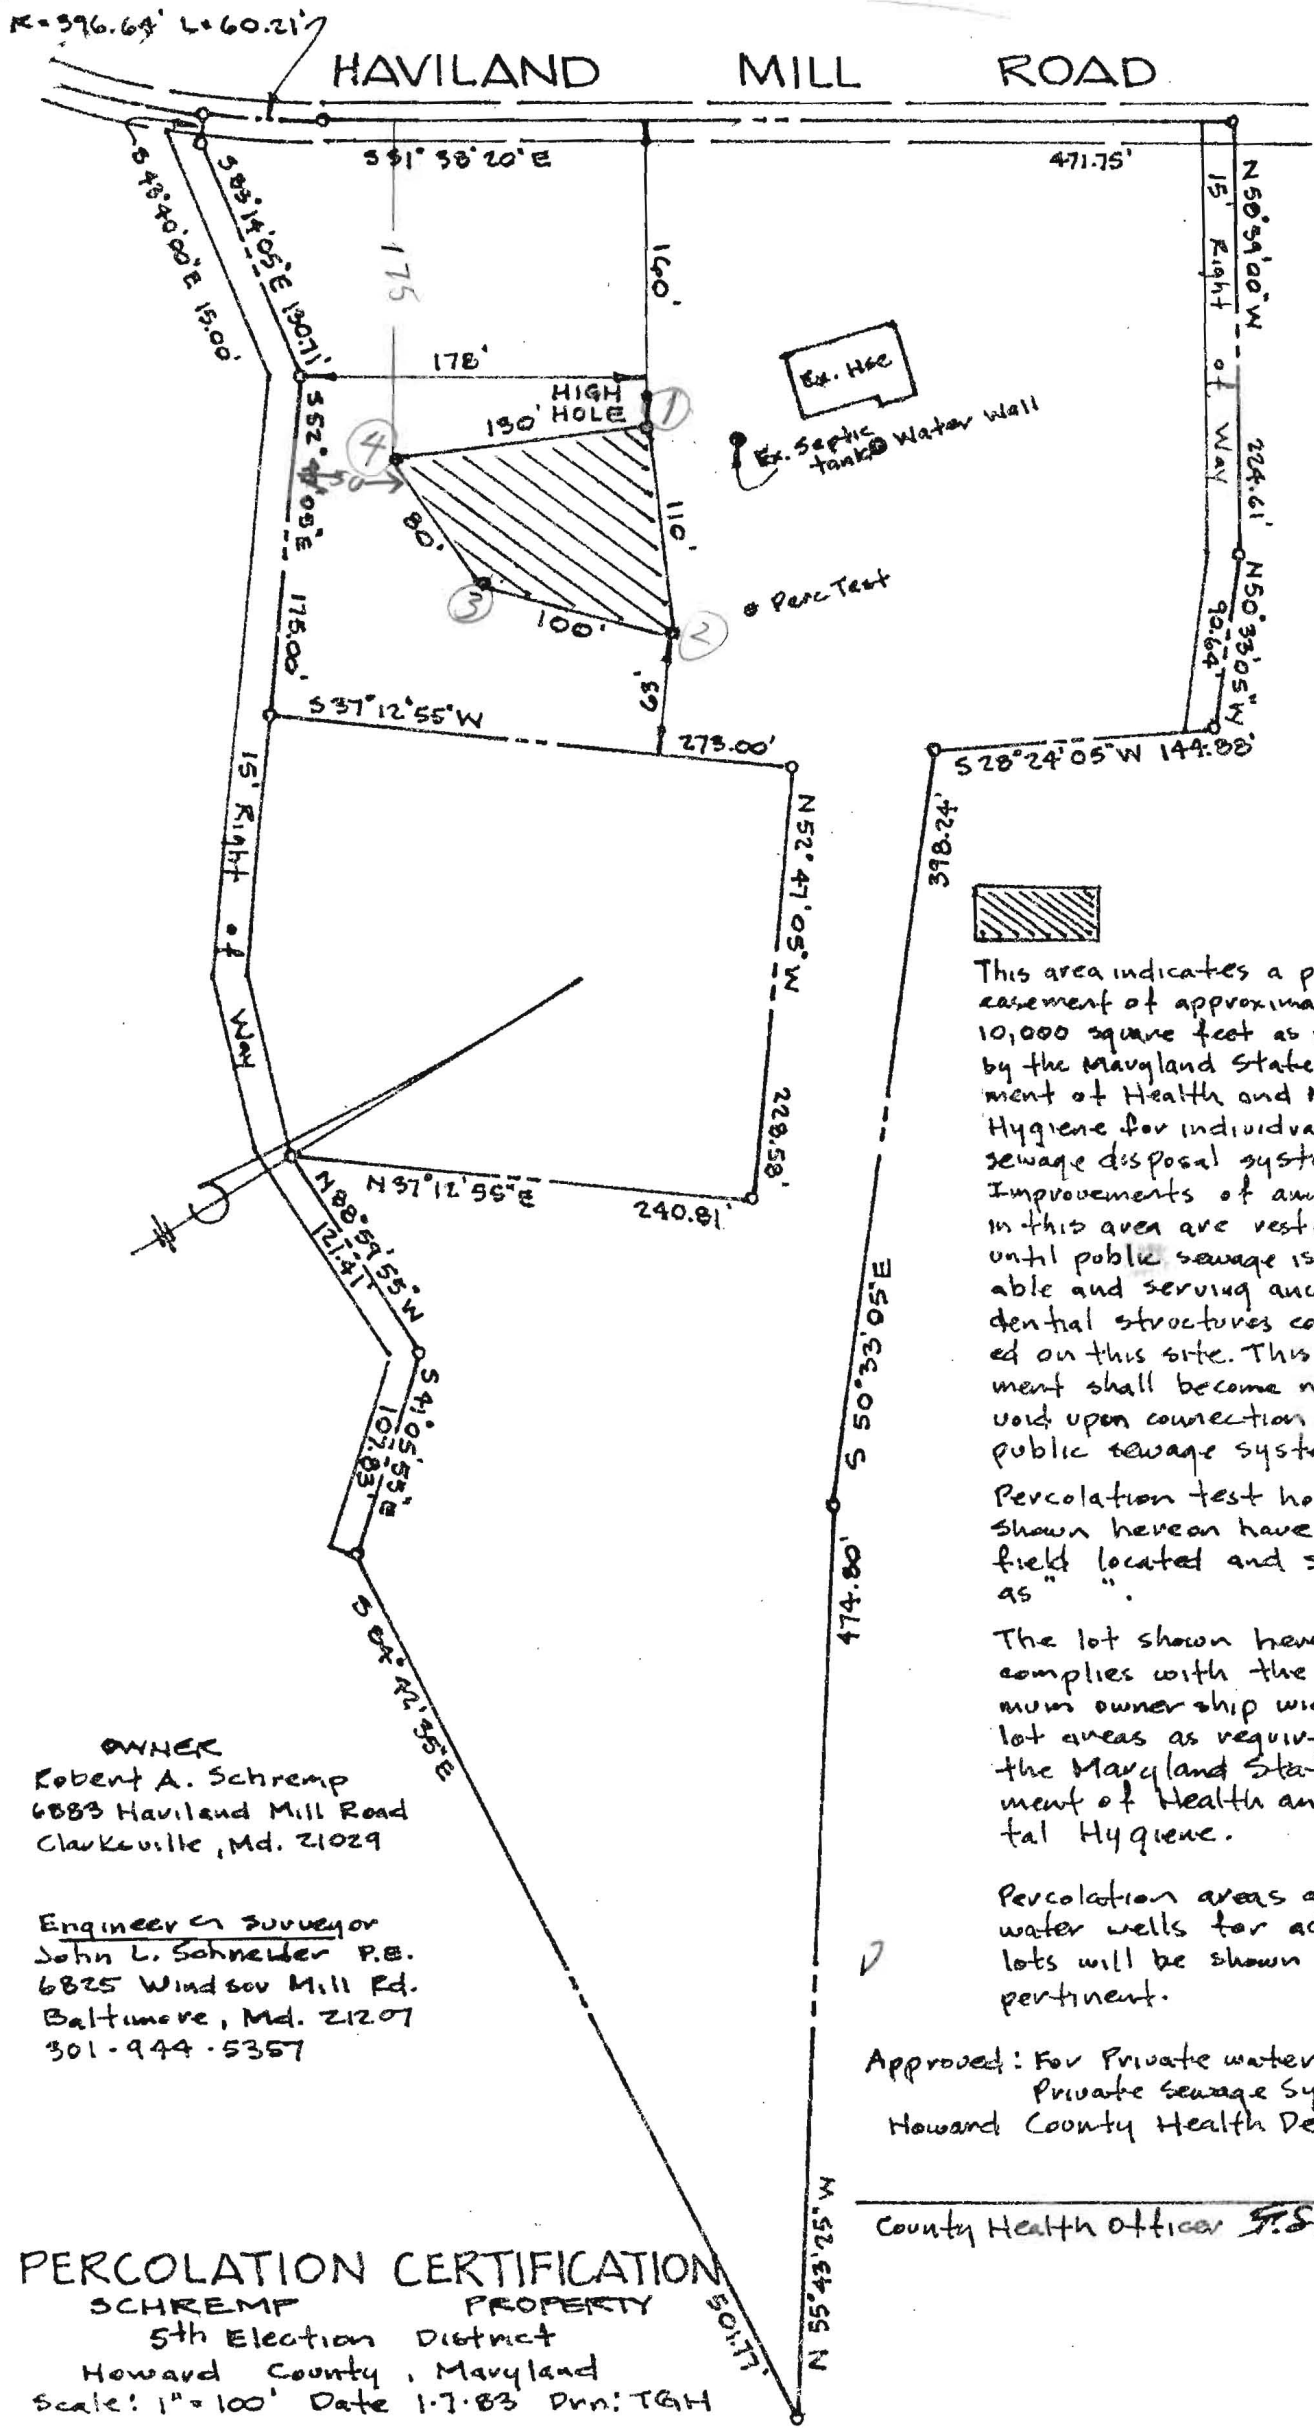 R=396.64' L=60.21'
HAVILAND MILL ROAD
S 31° 38' 20" E 471.75'
S 43° 40' 00" E 15.00'
S 83° 14' 05" E 130.71'
175
160'
15' Right of Way
N 50° 39' 00" W 224.61'
178'
HIGH HOLE
1
130'
4
Ex. Hse
Ex. Septic tank
Water Well
50
S 52° 05" E 175.00'
80'
110'
3
100'
2
Perc Test
63'
N 50° 33' 05" W
90.64'
S 37° 12' 55" W 273.00'
S 28° 24' 05" W 144.88'
15' Right of Way
N 52° 47' 05" W 228.58'
398.24'
S 50° 33' 05" E
N 37° 12' 55" E 240.81'
N 88° 59' 55" W
121.41'
S 41° 05' 55" E
107.83'
474.80'
N 55° 43' 25" W
S 84° 42' 35" E
501.77'
This area indicates a p
easement of approxima
10,000 square feet as
by the Maryland State
ment of Health and
Hygiene for individua
sewage disposal syst
Improvements of an
in this area are rest
until public sewage is
able and serving an
dential structures co
ed on this site. This
ment shall become n
void upon connection
public sewage syst
Percolation test ho
shown hereon have
field located and s
as " ".
The lot shown her
complies with the
mum ownership wi
lot areas as requir
the Maryland Sta
ment of Health an
tal Hygiene.
Percolation areas a
water wells for a
lots will be shown
pertinent.
Approved: For Private water
Private Sewage Sy
Howard County Health De
County Health Officer
OWNER
Robert A. Schremp
6883 Haviland Mill Road
Clarksville, Md. 21029
Engineer & Surveyor
John L. Schneider P.E.
6825 Windsor Mill Rd.
Baltimore, Md. 21207
301-944-5357
PERCOLATION CERTIFICATION
SCHREMP PROPERTY
5th Election District
Howard County, Maryland
Scale: 1"=100' Date 1-7-83 Drn: TGH